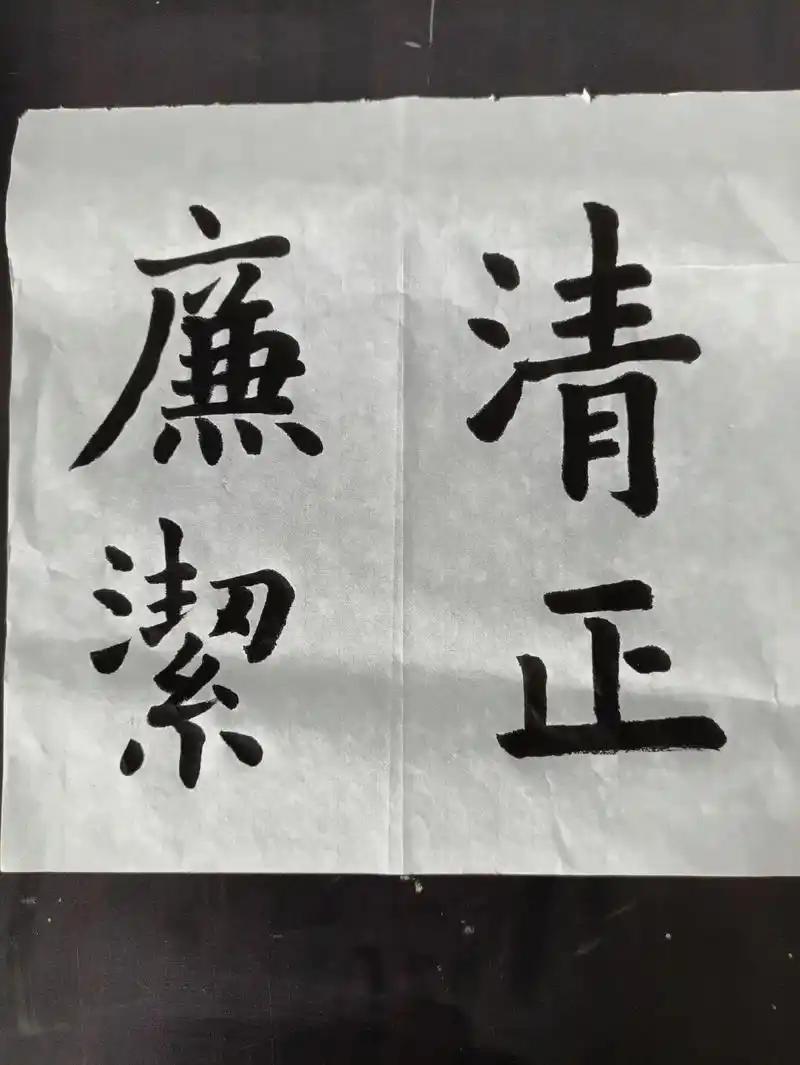 清正
廉潔